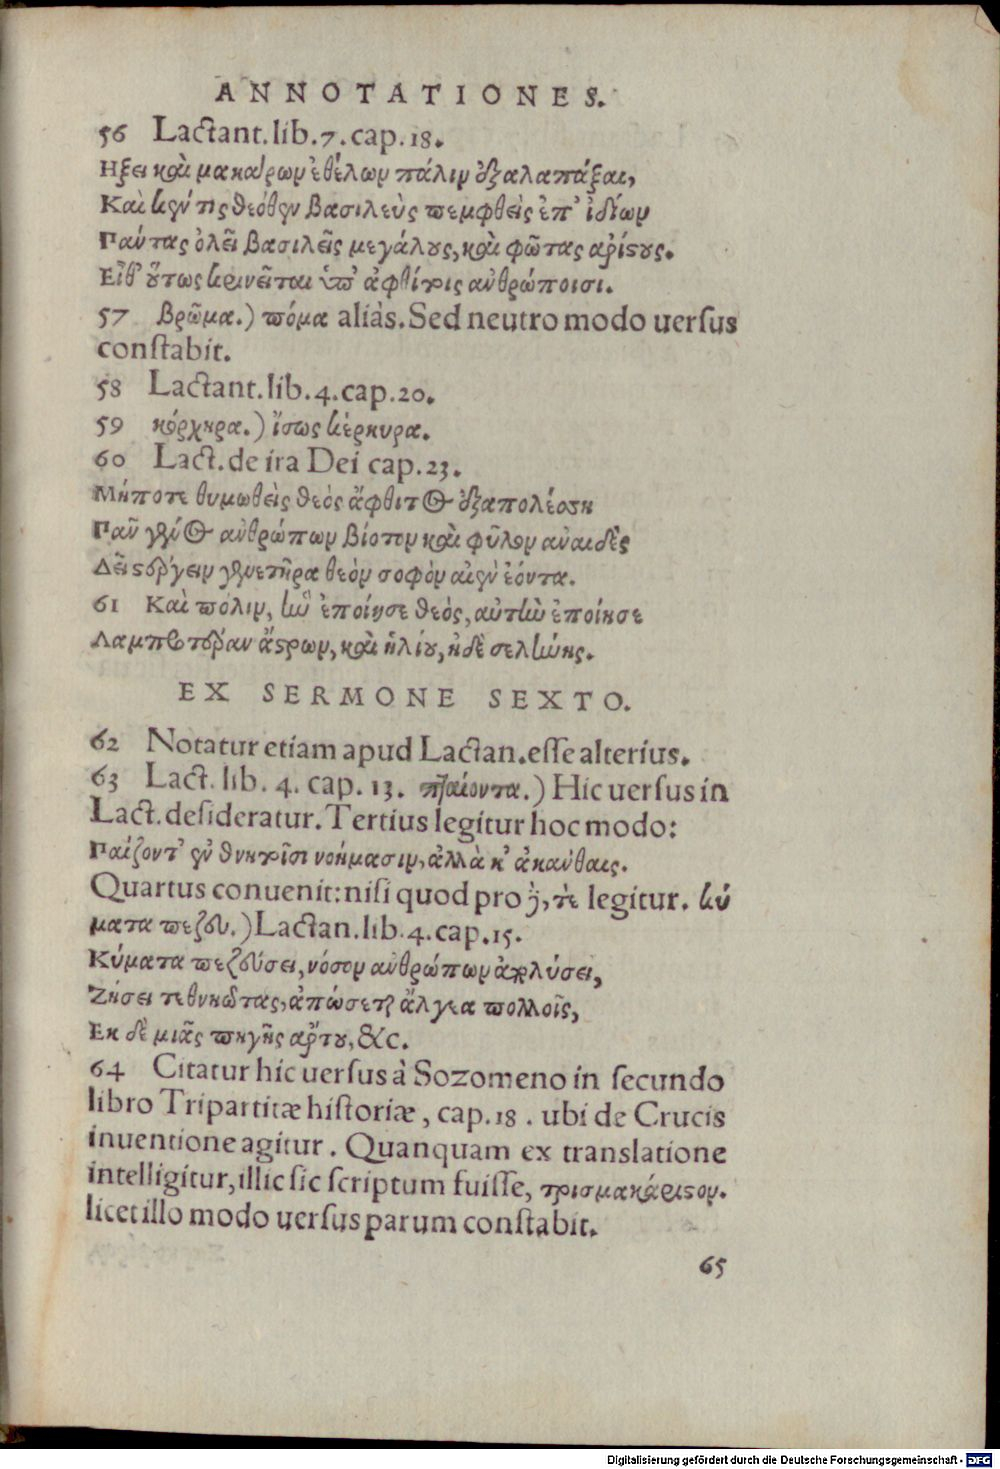 ANNOTATIONES.
56 Lactant. lib. 7. cap. 18.
Ηξει καὶ μακάρων ἐθέλων πόλιν ἐξαλαπάξαι,
Καὶ κέν τις θεόθεν βασιλεὺς πεμφθεὶς ἐπ' ἰδίων
Πάντας ὀλεῖ βασιλεῖς μεγάλους, καὶ φῶτας ἀρίστους.
Εἶθ' οὕτως κρινεῖται ὑπ' ἀφθίτοις ἀνθρώποισι.
57 βρῶμα.) πόμα alias. Sed neutro modo uersus
constabit.
58 Lactant. lib. 4. cap. 20.
59 κόρχηρα.) ἴσως κέρκυρα.
60 Lact. de ira Dei cap. 23.
Μήποτε θυμωθεὶς θεὸς ἄφθιτος ἐξαπολέσση
Πᾶν γένος ἀνθρώπων βίοτον καὶ φῦλον ἀναιδὲς
Δεῖ στέργειν γενετῆρα θεὸν σοφὸν αἰὲν ἐόντα.
61 Καὶ πόλιν, ἣν ἐποίησε θεὸς, αὐτὴν ἐποίησε
Λαμπροτέραν ἄστρων, καὶ ἡλίου, ἠδὲ σελήνης.
EX SERMONE SEXTO.
62 Notatur etiam apud Lactan. esse alterius.
63 Lact. lib. 4. cap. 13. πταίοντα.) Hic uersus in
Lact. desideratur. Tertius legitur hoc modo:
Παίζοντ' ἐν θνητοῖσι νοήμασιν, ἀλλὰ κ' ἀκάνθαις.
Quartus conuenit: nisi quod pro ὃ, τὲ legitur. κύ
ματα πεζεύ.) Lactan. lib. 4. cap. 15.
Κύματα πεζεύσει, νόσον ἀνθρώπων ἀπολύσει,
Ζήσει τεθνηῶτας, ἀπώσεται ἄλγεα πολλοῖς,
Εκ δὲ μιᾶς πηγῆς ἄρτου, &c.
64 Citatur hic uersus à Sozomeno in secundo
libro Tripartitæ historiæ, cap. 18. ubi de Crucis
inuentione agitur. Quanquam ex translatione
intelligitur, illic sic scriptum fuisse, τρισμακάριστον.
licet illo modo uersus parum constabit.
65
Digitalisierung gefördert durch die Deutsche Forschungsgemeinschaft - DFG